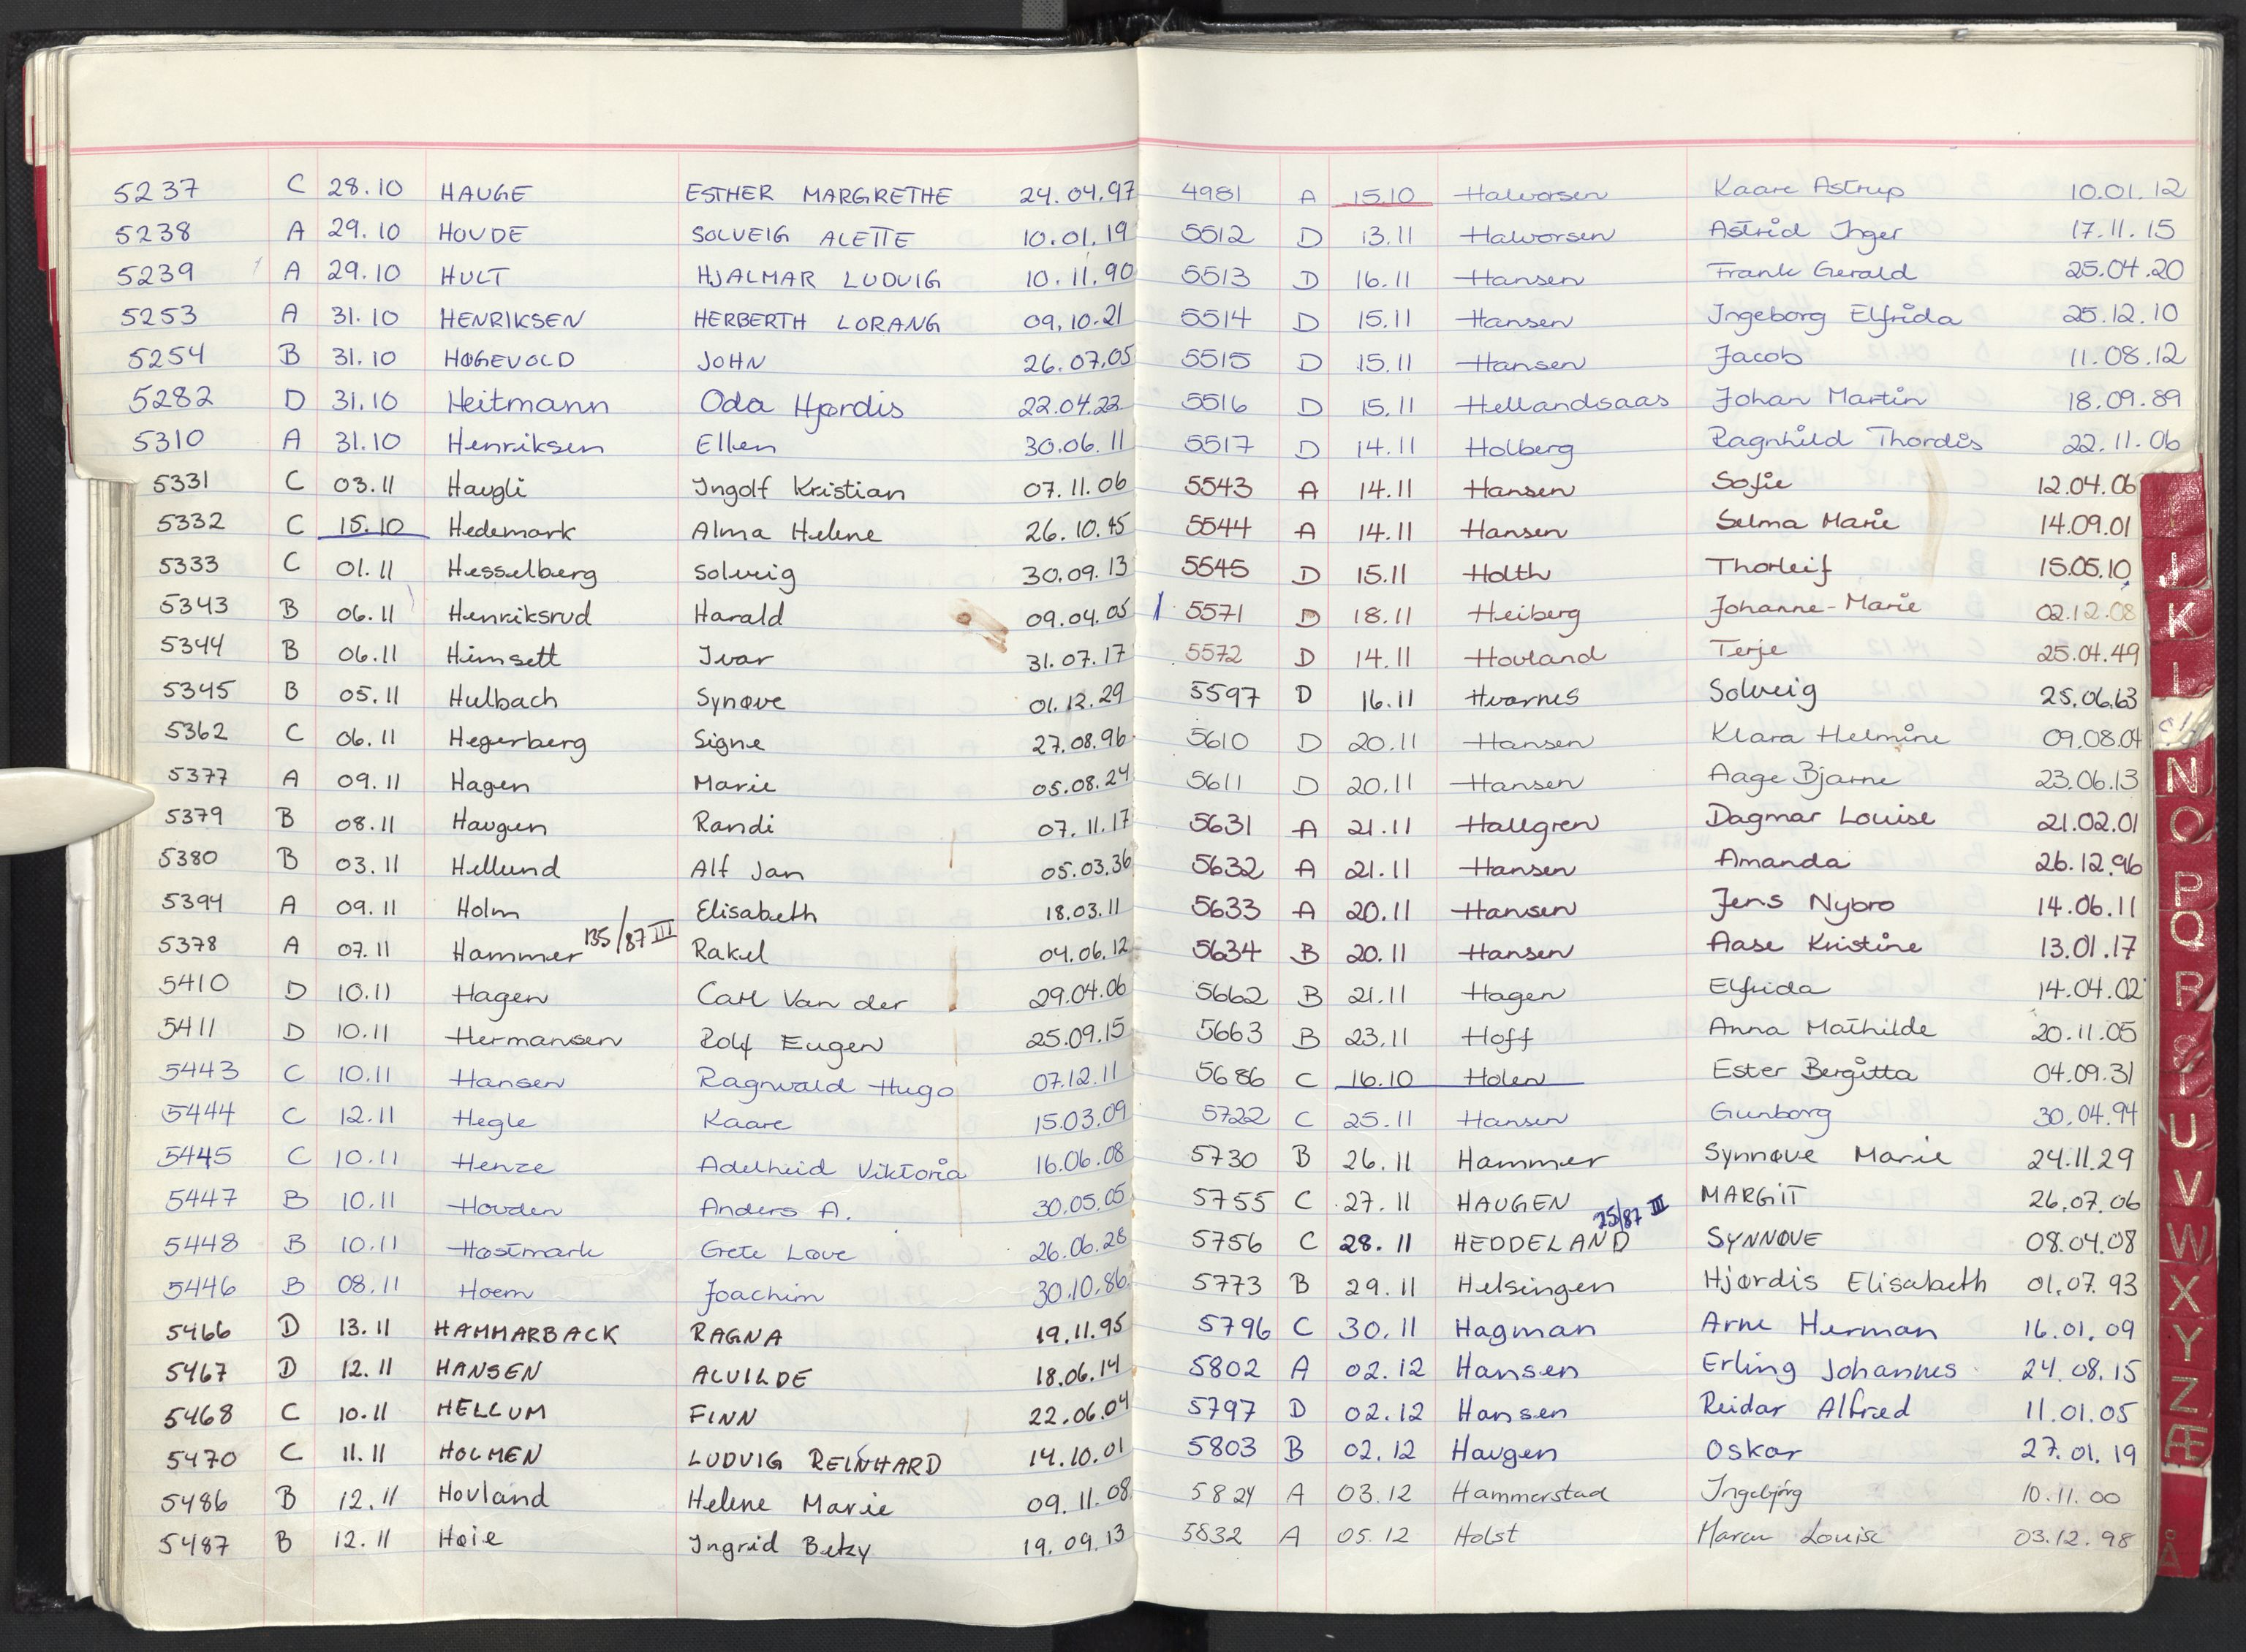 5237 C 28.10 HAUGE ESTHER MARGRETHE 24.04.97
5238 A 29.10 HOVDE SOLVEIG ALETTE 10.01.19
5239 A 29.10 HULT HJALMAR LUDVIG 10.11.90
5253 A 31.10 HENRIKSEN HERBERTH LORANG 09.10.21
5254 B 31.10 HØGEVOLD JOHN 26.07.05
5282 D 31.10 Heitmann Oda Hjørdis 22.04.22
5310 A 31.10 Henriksen Ellen 30.06.11
5331 C 03.11 Haugli Ingolf Kristian 07.11.06
5332 C 15.10 Hedemark Alma Helene 26.10.45
5333 C 01.11 Hesselberg Solveig 30.09.13
5343 B 06.11 Henriksrud Harald 09.04.05
5344 B 06.11 Himsett Ivar 31.07.17
5345 B 05.11 Hulbach Synøve 01.12.29
5362 C 06.11 Hegerberg Signe 27.08.96
5377 A 09.11 Hagen Marie 05.08.24
5379 B 08.11 Haugen Randi 07.11.17
5380 B 03.11 Hellund Alf Jan 05.03.36
5394 A 09.11 Holm Elisabeth 18.03.11
5378 A 07.11 Hammer 135/87 III Rakel 04.06.12
5410 D 10.11 Hagen Carl Van der 29.04.06
5411 D 10.11 Hermansen Rolf Eugen 25.09.15
5443 C 10.11 Hansen Ragnvald Hugo 07.12.11
5444 C 12.11 Hegle Kaare 15.03.09
5445 C 10.11 Henze Adelheid Viktoria 16.06.08
5447 B 10.11 Hovden Anders A. 30.05.05
5448 B 10.11 Høstmark Grete Love 26.06.28
5446 B 08.11 Hoem Joachim 30.10.86
5466 D 13.11 HAMMARBACK RAGNA 19.11.95
5467 D 12.11 HANSEN ALVILDE 18.06.14
5468 C 10.11 HELLUM FINN 22.06.04
5470 C 11.11 HOLMEN LUDVIG REINHARD 14.10.01
5486 B 12.11 Hovland Helene Marie 09.11.08
5487 B 12.11 Høie Ingrid Betzy 19.09.13
4981 A 15.10 Halvorsen Kaare Astrup 10.01.12
5512 D 13.11 Halvorsen Astrid Inger 17.11.15
5513 D 16.11 Hansen Frank Gerald 25.04.20
5514 D 15.11 Hansen Ingeborg Elfrida 25.12.10
5515 D 15.11 Hansen Jacob 11.08.12
5516 D 15.11 Hellandsaas Johan Martin 18.09.89
5517 D 14.11 Holberg Ragnhild Thordis 22.11.06
5543 A 14.11 Hansen Sofie 12.04.06
5544 A 14.11 Hansen Selma Marie 14.09.01
5545 D 15.11 Holth Thorleif 15.05.10
5571 D 18.11 Heiberg Johanne-Marie 02.12.08
5572 D 14.11 Hovland Terje 25.04.49
5597 D 16.11 Hvarnes Solveig 25.06.63
5610 D 20.11 Hansen Klara Helmine 09.08.04
5611 D 20.11 Hansen Aage Bjarne 23.06.13
5631 A 21.11 Hallgren Dagmar Louise 21.02.01
5632 A 21.11 Hansen Amanda 26.12.96
5633 A 20.11 Hansen Jens Nybro 14.06.11
5634 B 20.11 Hansen Aase Kristine 13.01.17
5662 B 21.11 Hagen Elfrida 14.04.02
5663 B 23.11 Hoff Anna Mathilde 20.11.05
5686 C 16.10 Holen Ester Bergitta 04.09.31
5722 C 25.11 Hansen Gunborg 30.04.94
5730 B 26.11 Hammer Synnøve Marie 24.11.29
5755 C 27.11 HAUGEN MARGIT 26.07.06
5756 C 28.11 HEDDELAND 25/87 III SYNNØVE 08.04.08
5773 B 29.11 Helsingen Hjørdis Elisabeth 01.07.93
5796 C 30.11 Hagman Arne Herman 16.01.09
5802 A 02.12 Hansen Erling Johannes 24.08.15
5797 D 02.12 Hansen Reidar Alfred 11.01.05
5803 B 02.12 Haugen Oskar 27.01.19
5824 A 03.12 Hammerstad Ingebjørg 10.11.00
5832 A 05.12 Holst Maren Louise 03.12.98
J
K
L
N
O
P
Q
R
S
T
U
V
W
X
Y
Z
Æ
Å